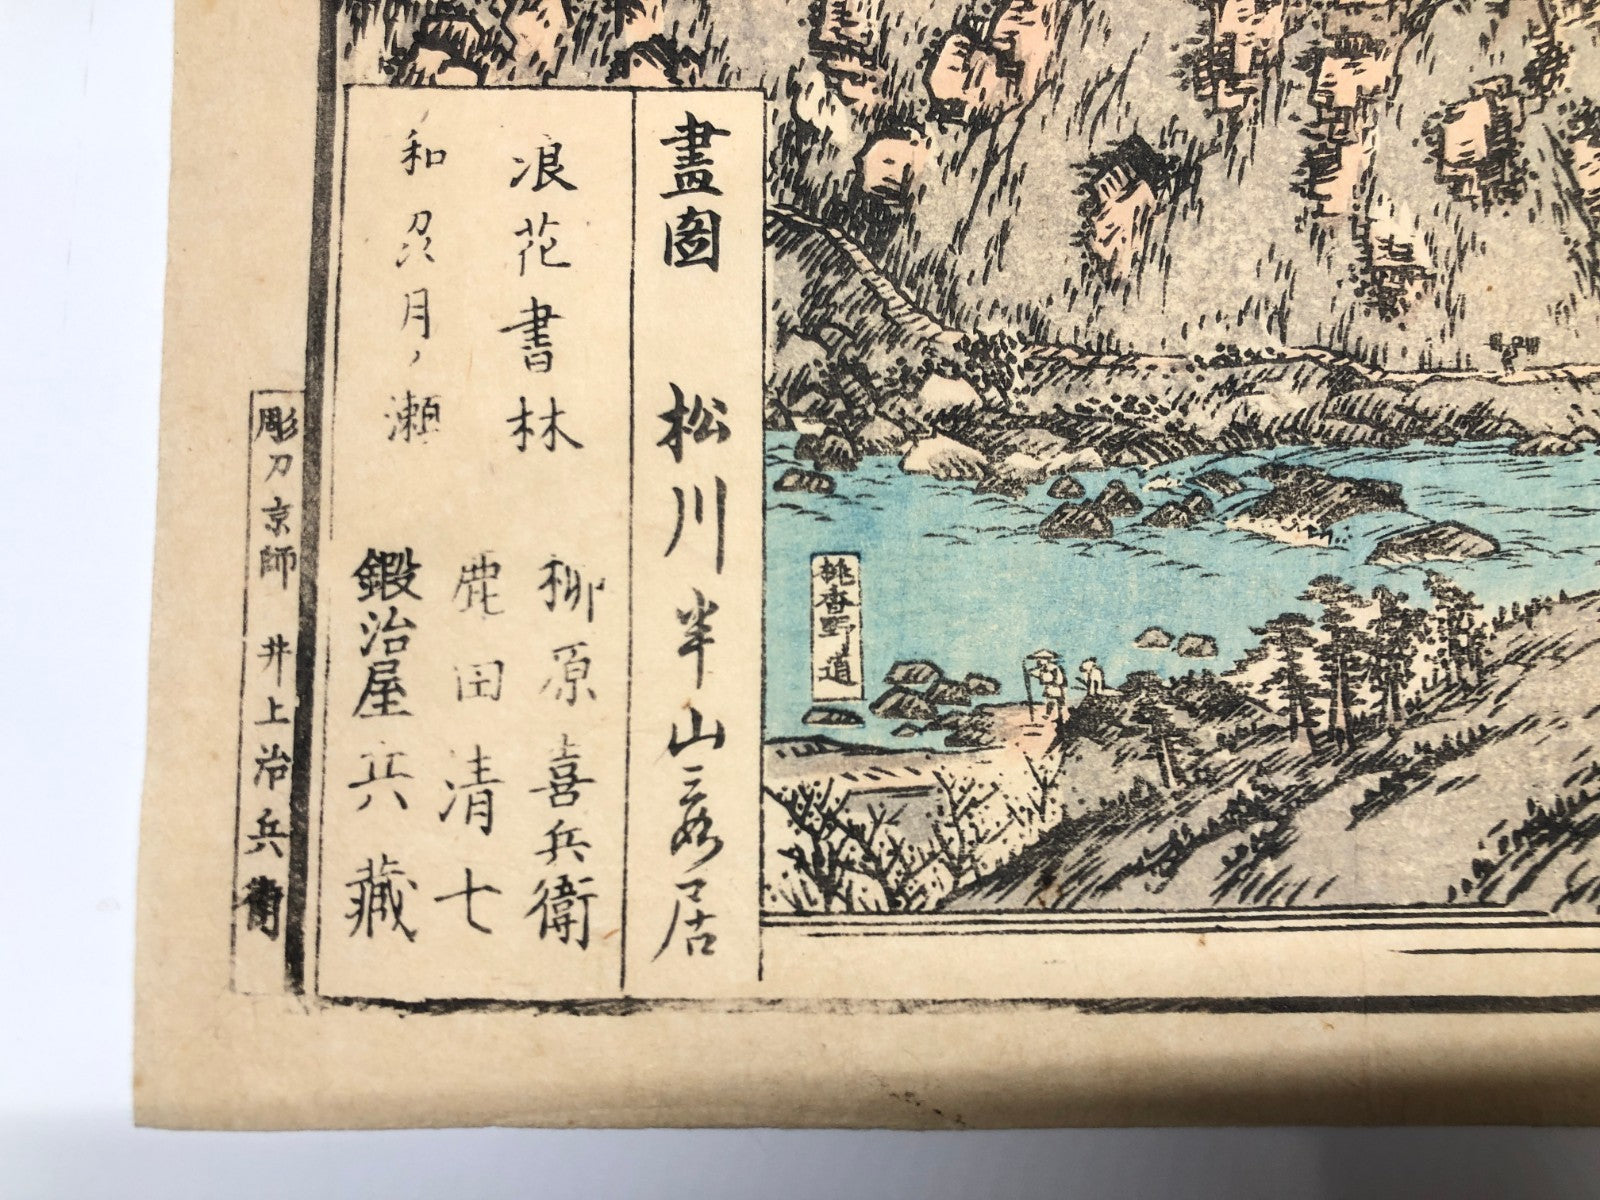 桃香野道
畫圖 松川半山霞居
浪花書林 柳原喜兵衛
鹿田清七
和刕月ノ瀬 鍛治屋兵藏
彫刀京師 井上治兵衛